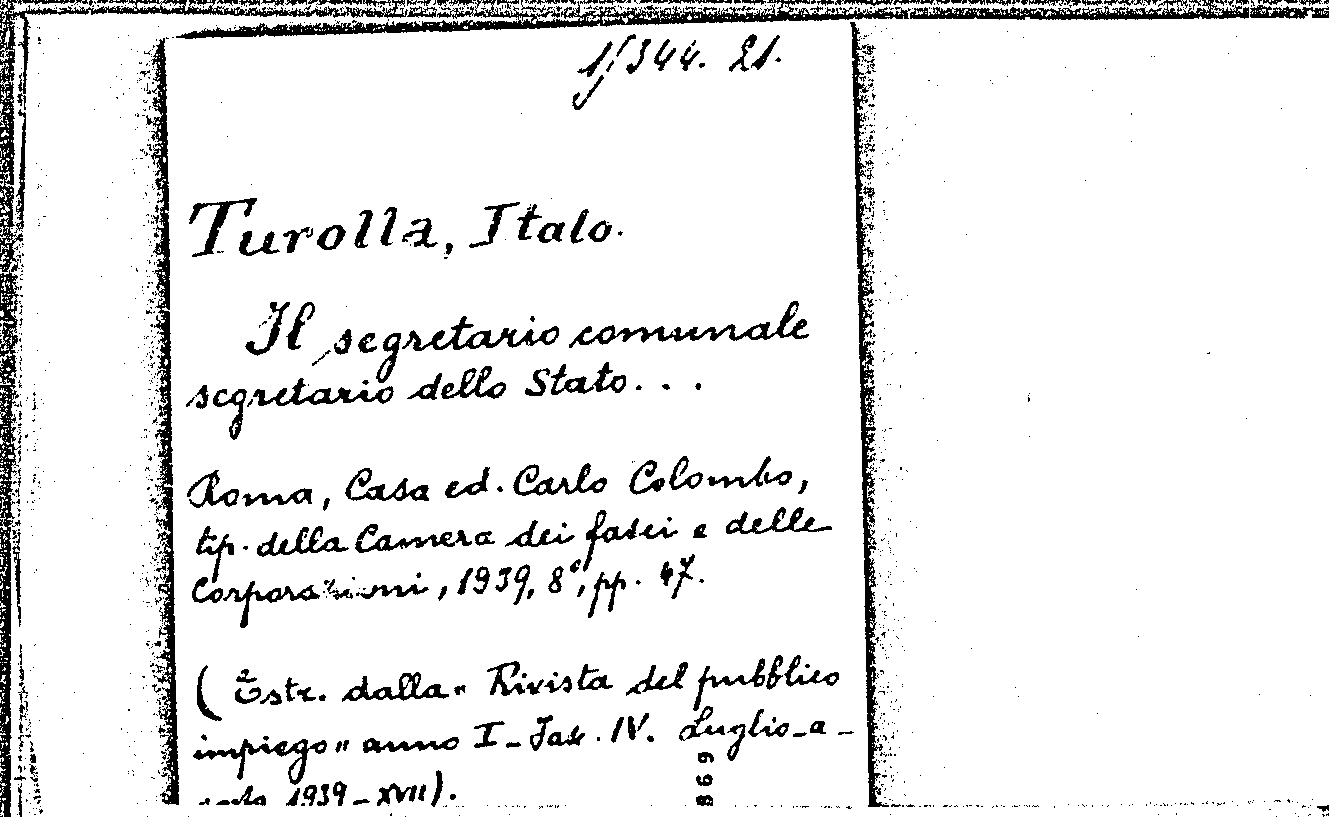 1/344. 21.
Turolla, Italo.
Il segretario comunale
segretario dello Stato. . .
Roma, Casa ed. Carlo Colombo,
tip. della Camera dei fasci e delle
Corporazioni, 1939, 8°, pp. 47.
( Estr. dalla " Rivista del pubblico
impiego " anno I - Fasc. IV. Luglio-a-
1939 - XVII).
869